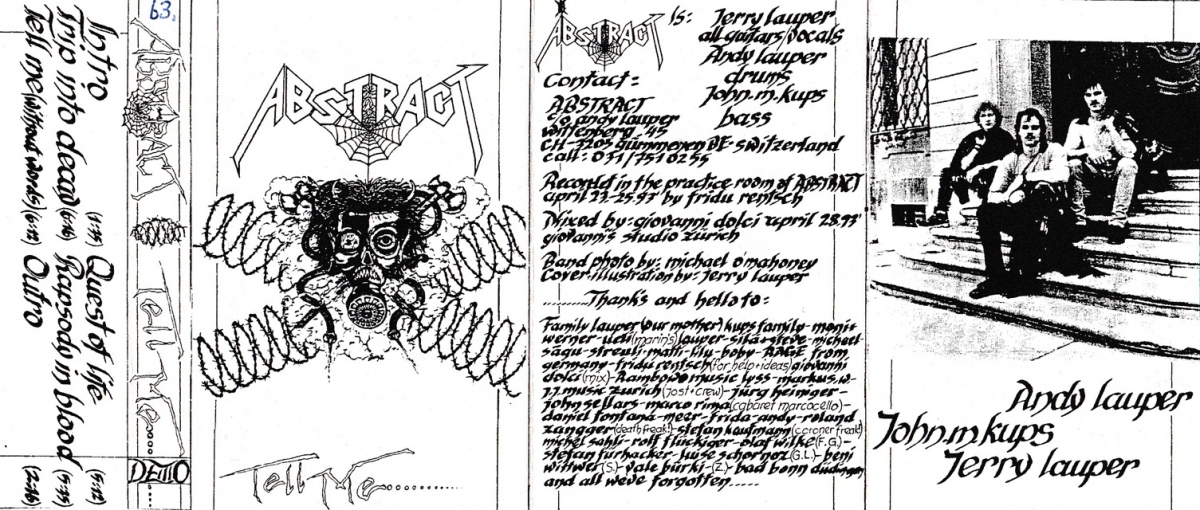 Intro (1:35)
Trip into decay (6:46)
Tell me (without words) (6:12)
Quest of life (5:12)
Rapsody in blood (5:35)
Outro (2:46)
63.
ABSTRACT
Tell Me.....
DEMO
ABSTRACT
Tell Me............
ABSTRACT
Is: Jerry lauper
all guitars/vocals
Andy lauper
drums
John.m.kups
bass
Contact:
ABSTRACT
c/o andy lauper
wittenberg 45
CH-3205 gümmenen BE-switzerland
call: 031/751 0255
Recorded in the practice room of ABSTRACT
april 23-25.93 by fridu rentsch
Mixed by: giovanni dolci april 28.93'
giovanni's studio zürich
Band photo by: michael o'mahoney
Cover-illustration by: Jerry lauper
..........Thank's and hello to:
Family lauper (our mother) kups family-moni+
werner-ueli (marin's) lauper-sila+steve-michael
sagu-streuli-matti-lilu-boby-RAGE from
germany-fridu rentsch (for help+ideas) giovanni
dolci (mix)-Ramboivo music lyss-markus.w.-
J.J. music zürich (jost+crew)-jürg heiniger-
john sellars-marco rima (cabaret marcocello)-
daniel fontana-meer-frida-andy-roland
zangger (death freak!)-stefan kaufmann (coroner freak)
michel sahli-rolf flückiger-olaf wilke (F.G.)-
stefan fürhacker-luise schornoz (G.L.)-beni
wittwer (S.)-vale bürki-(Z.)-bad bonn düdingen
and all we've forgotten.....
Andy lauper
John.m.kups
Jerry lauper